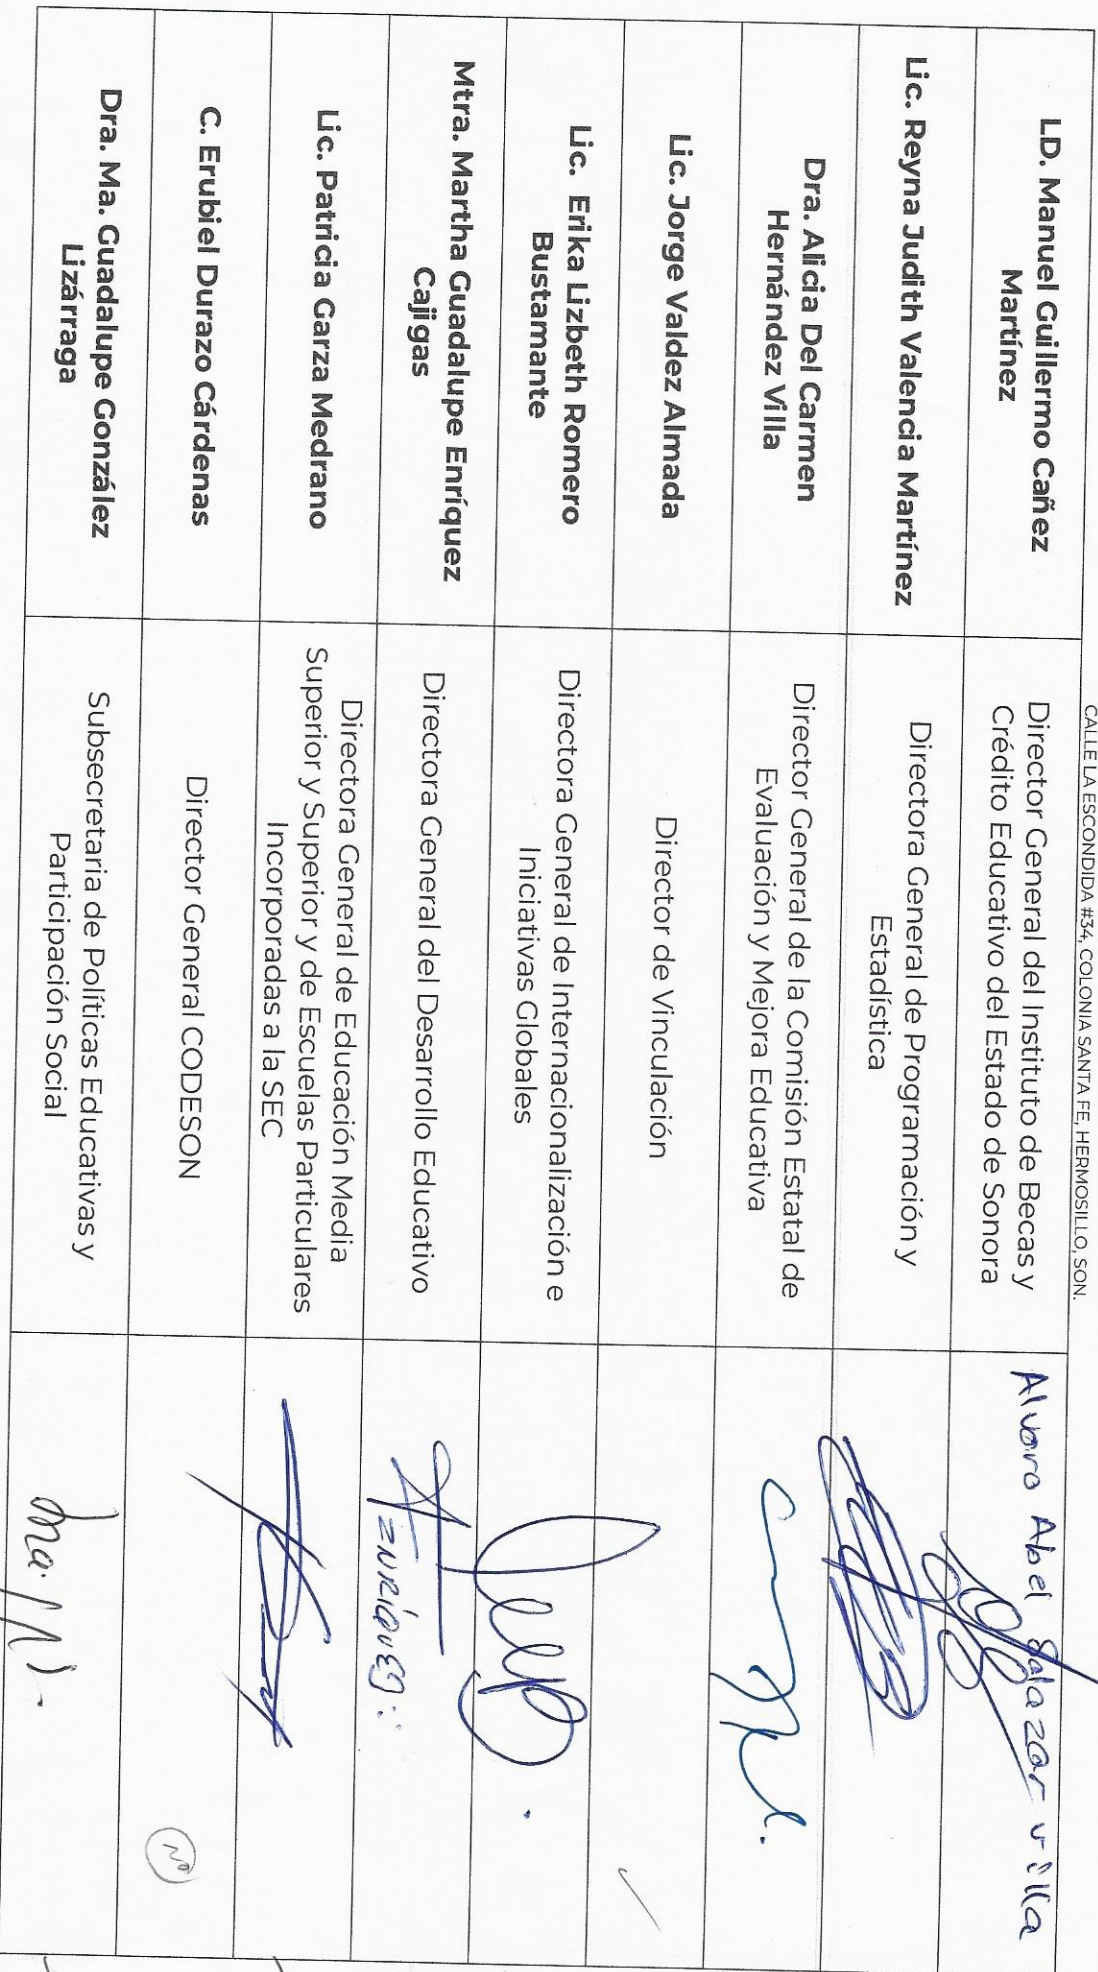 CALLE LA ESCONDIDA #34, COLONIA SANTA FE, HERMOSILLO, SON.
LD. Manuel Guillermo Cañez
Martínez
Director General del Instituto de Becas y
Crédito Educativo del Estado de Sonora
Alvaro Abel Salazar villa
Lic. Reyna Judith Valencia Martínez
Directora General de Programación y
Estadística
Dra. Alicia Del Carmen
Hernández Villa
Director General de la Comisión Estatal de
Evaluación y Mejora Educativa
Lic. Jorge Valdez Almada
Director de Vinculación
Lic. Erika Lizbeth Romero
Bustamante
Directora General de Internacionalización e
Iniciativas Globales
Mtra. Martha Guadalupe Enríquez
Cajigas
Directora General del Desarrollo Educativo
ENRÍQUEZ
Lic. Patricia Garza Medrano
Directora General de Educación Media
Superior y Superior y de Escuelas Particulares
Incorporadas a la SEC
C. Erubiel Durazo Cárdenas
Director General CODESON
Dra. Ma. Guadalupe González
Lizárraga
Subsecretaria de Políticas Educativas y
Participación Social